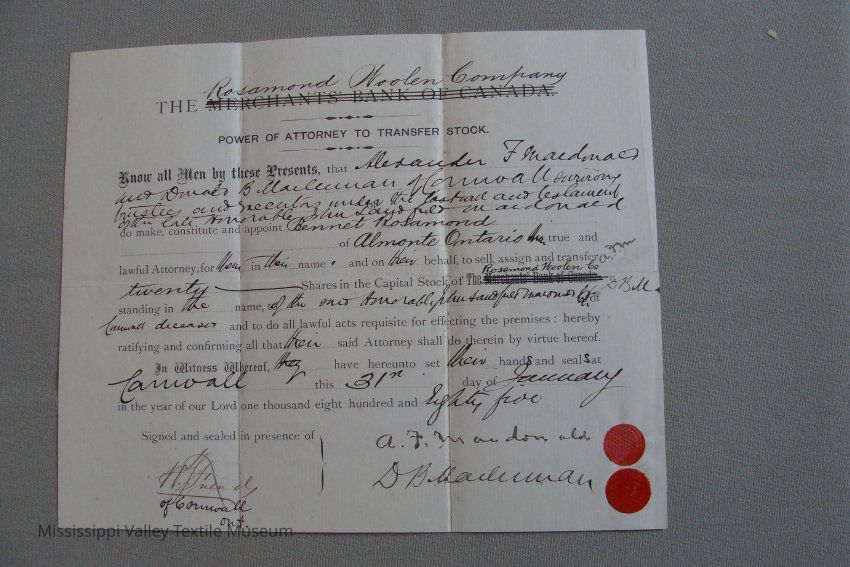 Rosamond Woolen Company
THE MERCHANTS' BANK OF CANADA.
POWER OF ATTORNEY TO TRANSFER STOCK.
Know all Men by these Presents, that Alexander F Macdonald
and Donald B Maclennan of Cornwall surviving
trustees and executors under the last will and testament
of the late Honorable John Sandfield Macdonald
do make, constitute and appoint Bennet Rosamond
of Almonte Ontario true and
lawful Attorney, for them in their name and on their behalf, to sell, assign and transfer
Rosamond Woolen Co
twenty Shares in the Capital Stock of The Merchants' Bank of Canada D B M
standing in the name of the said Honorable John Sandfield Macdonald of
Cornwall deceased and to do all lawful acts requisite for effecting the premises: hereby
ratifying and confirming all that their said Attorney shall do therein by virtue hereof.
In Witness Whereof, they have hereunto set their hands and seals at
Cornwall this 31st day of January
in the year of our Lord one thousand eight hundred and Eighty five
Signed and sealed in presence of
A. F. Macdonald
D B Maclennan
of Cornwall
Ont.
Mississippi Valley Textile Museum